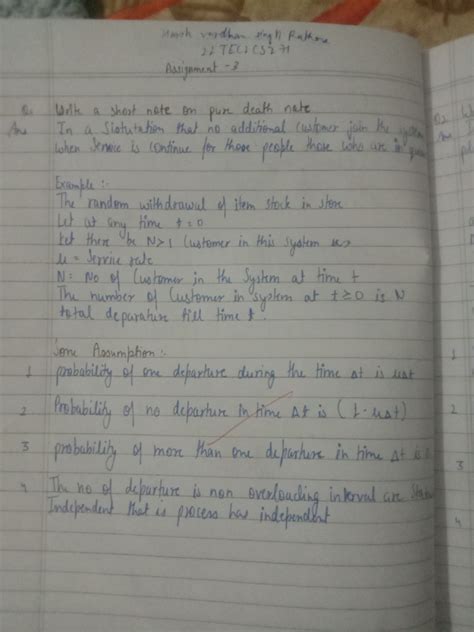 vardhan singh Rathore
22TEC2CS271
Assignment - 3
Q1 Write a short note on pure death rate
Ans In a Siatutation that no additional Customer join the system
when Service is continue for those people those who are in
Example :-
The random withdrawal of item stock in store
Let at any time t = 0
Let there be N>1 Customer in this system
u = Service rate
N = No of Customer in the System at time t
The number of Customer in system at t ≥ 0 is N
total deparature till time t.
Some Assumption :-
1 probability of one departure during the time Δt is uΔt
2 Probability of no departure in time Δt is (1 - uΔt)
3 probability of more than one departure in time Δt is
4 The no of departure is non overloading interval are
Independent that is process has independent
Q2
Ans
1
2
3
4